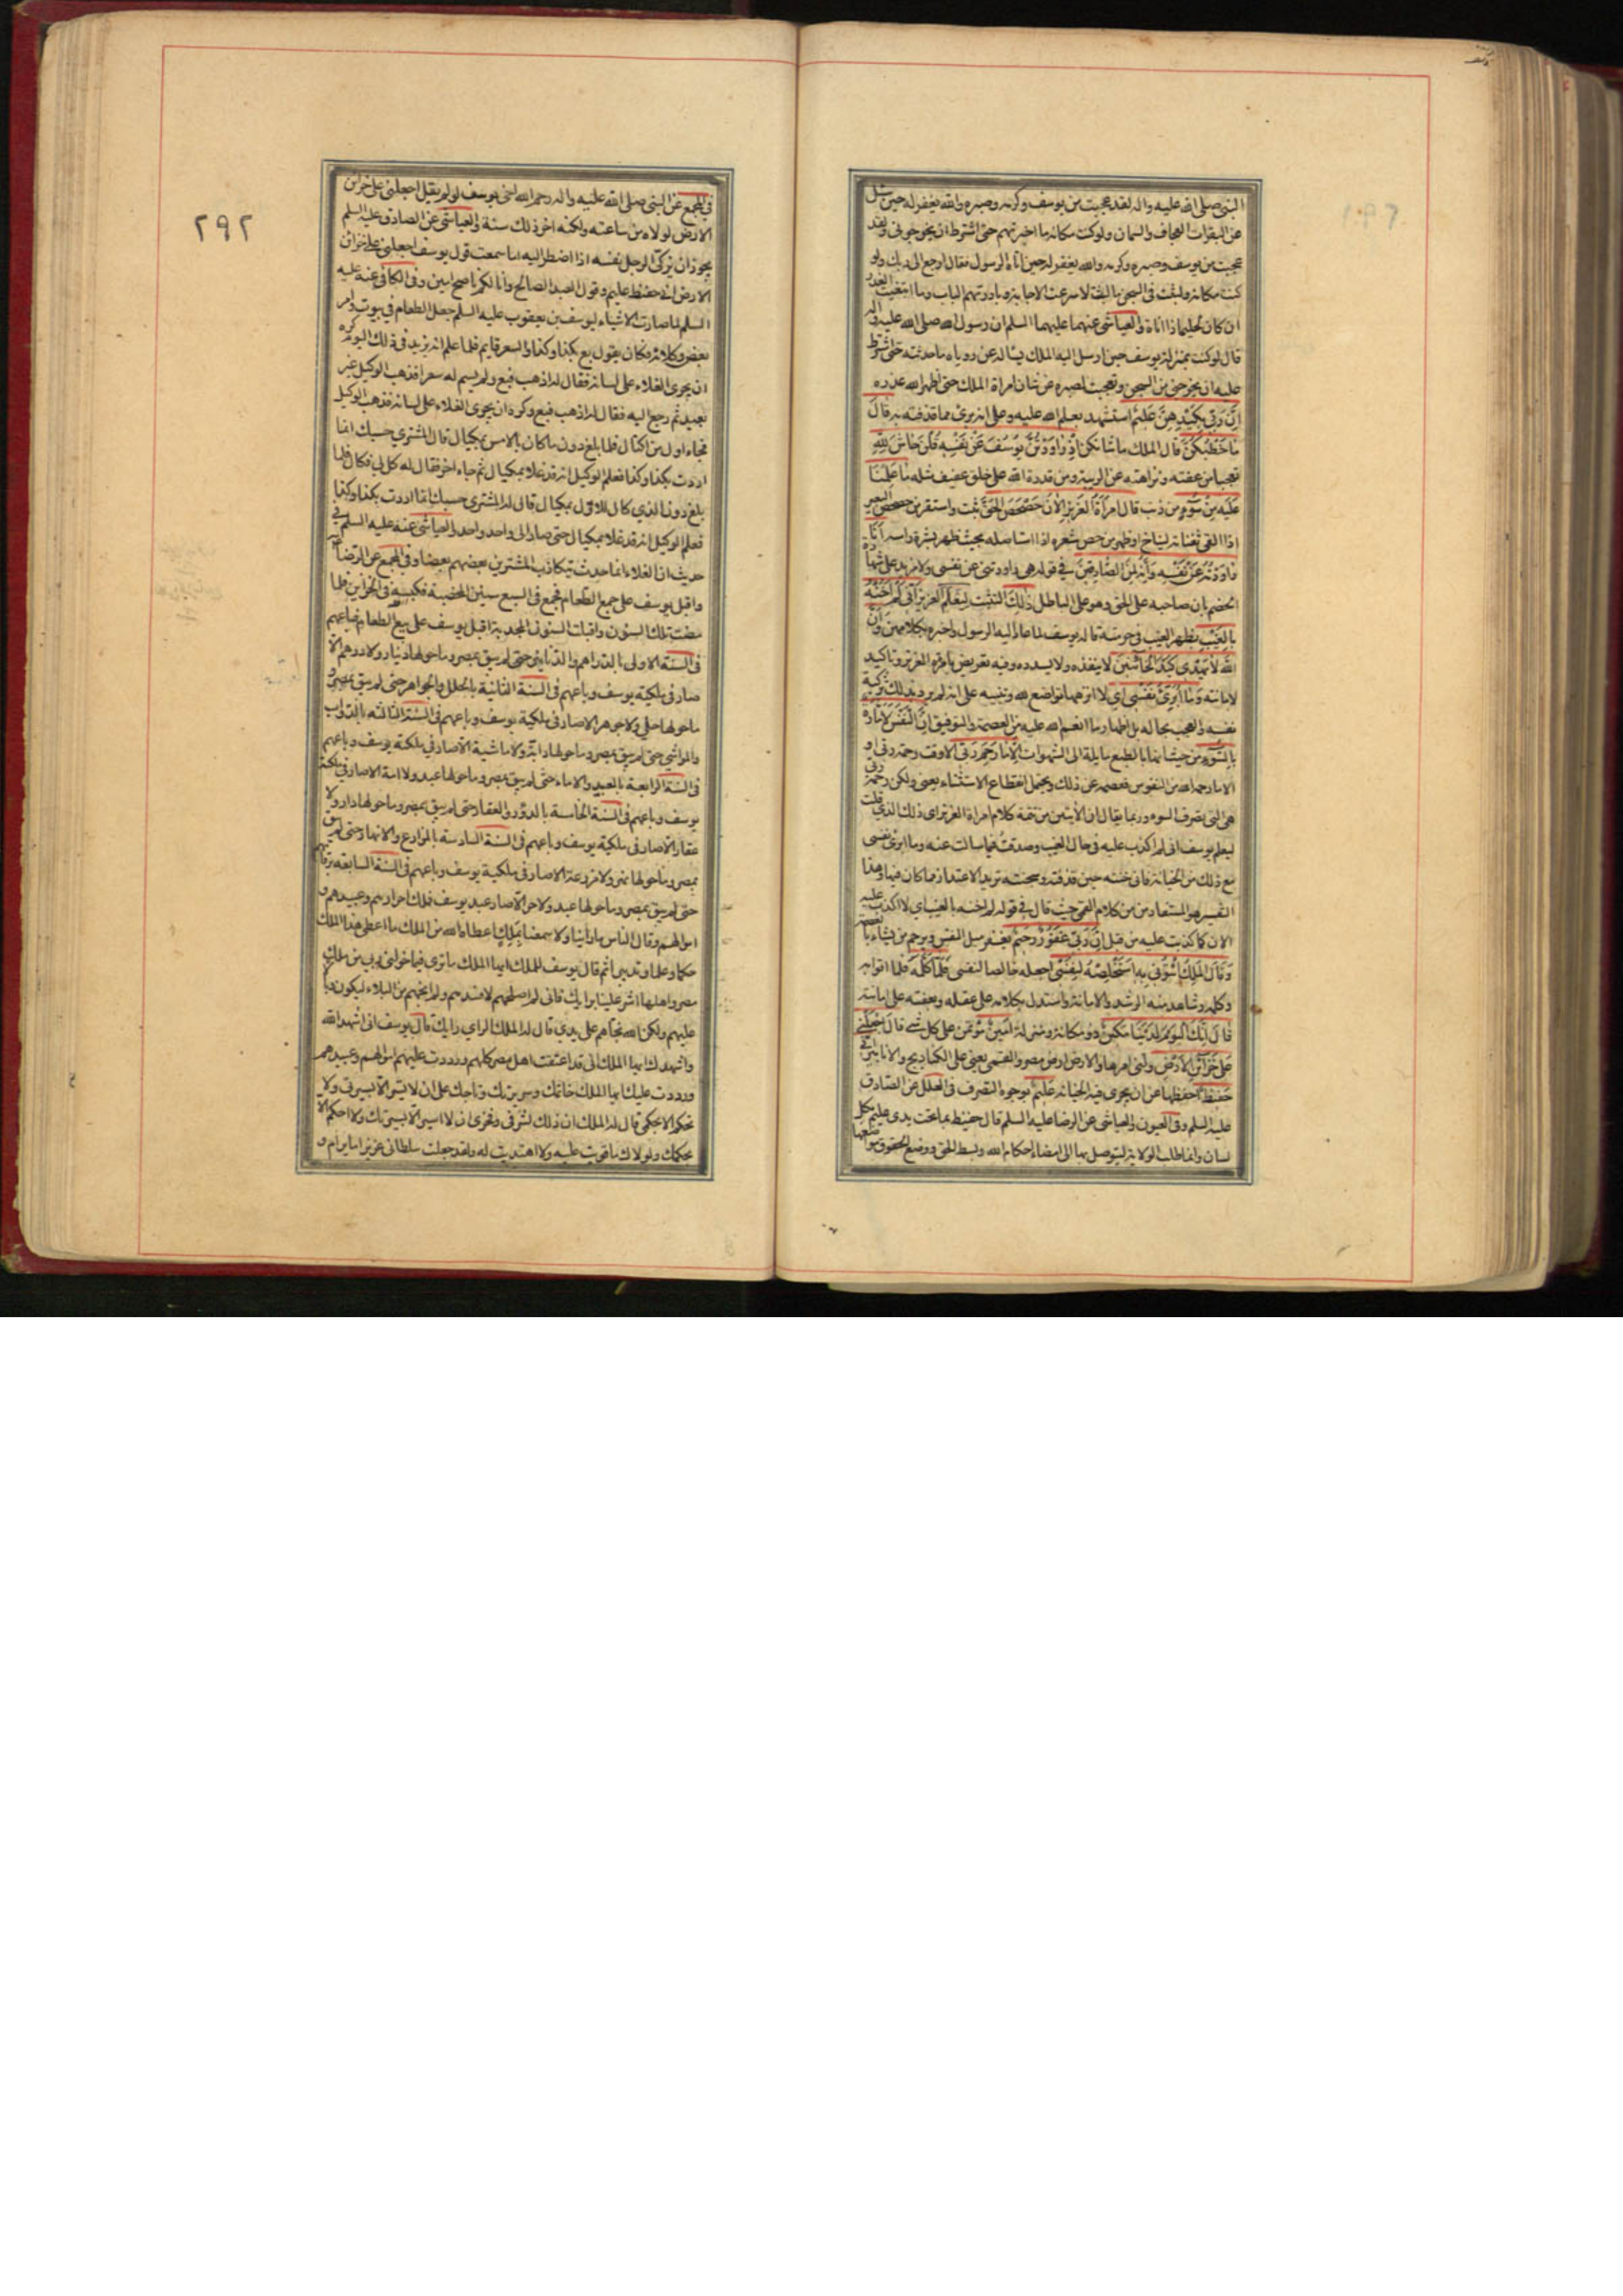 النبي صلى الله عليه واله لقد عجبت من يوسف وكرمه وصبره والله يغفر له حين سئل
عن البقرات العجاف والسمان ولو كنت مكانه ما اخبرتهم حتى اشترط ان يخرجوني ولقد
عجبت من يوسف وصبره وكرمه والله يغفر له حين اتاه الرسول فقال ارجع الى ربك ولو
كنت مكانه ولبثت في السجن ما لبث لاسرعت الاجابة وبادرتهم الباب وما ابتغيت العذر
ان كان لحليما ذا اناة والعياشي عنهما عليهما السلم ان رسول الله صلى الله عليه واله
قال لو كنت بمنزلة يوسف حين ارسل اليه الملك يساله عن رؤياه ما حدثته حتى اشترط
عليه ان يخرجني من السجن وتعجبت لصبره عن شان امراة الملك حتى اظهر الله عذره
ان ربي بكيدهن عليم استشهد بعلم الله عليه وعلى انه بريء مما قذفته به قال
ما خطبكن قال الملك ما شانكن اذ راودتن يوسف عن نفسه قلن حاش لله
تعجبا من عفته ونزاهته عن الريبة ومن قدرة الله على خلق عفيف مثله ما علمنا
عليه من سوء من ذنب قالت امراة العزيز الان حصحص الحق ثبت واستقر من حصحص البعير
اذا القى ثفناته ليناخ او ظهر من حص شعره اذا استاصله بحيث ظهر بشرة راسه انا
راودته عن نفسه وانه لمن الصادقين في قوله هي راودتني عن نفسي ولا مزيد على شهادة
الخصم بان صاحبه على الحق وهو على الباطل ذلك التثبت ليعلم العزيز اني لم اخنه
بالغيب بظهر الغيب في حرمته قاله يوسف لما عاد اليه الرسول واخبره بكلامهن وان
الله لا يهدي كيد الخائنين لا ينفذه ولا يسدده وفيه تعريض بامراة العزيز وتاكيد
لامانته وما ابرئ نفسي اي لا انزهها تواضع لله وتنبيه على انه لم يرد بذلك تزكية
نفسه والعجب بحاله بل اظهار ما انعم الله عليه من العصمة والتوفيق ان النفس لامارة
بالسوء من حيث انها بالطبع مايلة الى الشهوات الا ما رحم ربي الا وقت رحمة ربي او
الا ما رحمه الله من النفوس فعصمه عن ذلك ويحتمل انقطاع الاستثناء يعني ولكن رحمة ربي
هي التي يصرف السوء وربما يقال ان الآيتين من تتمة كلام امراة العزيز اي ذلك الذي قلت
ليعلم يوسف اني لم اكذب عليه في حال الغيب وصدقت فيما سالت عنه وما ابرئ نفسي
مع ذلك من الخيانة فاني خنته حين قذفته وسجنته تريد الاعتذار مما كان منها وهذا
التفسير هو المستفاد من كلام القمي حيث قال في قوله لم اخنه بالغيب اي لا اكذب عليه
الان كما كذبت عليه من قبل ان ربي غفور رحيم يغفر ميل النفس ويرحم من يشاء بالعصمة
وقال الملك ائتوني به استخلصه لنفسي اجعله خالصا لنفسي فلما كلمه فلما اتوا به
وكلمه وشاهد منه الرشد والامانة واستدل بكلامه على عقله وبعفته على امانته
قال انك اليوم لدينا مكين ذو مكانة ومنزلة امين مؤتمن على كل شيء قال اجعلني
على خزائن الارض ولني امرها والارض ارض مصر والقمي يعني على الكناديج والانابير اني
حفيظ احفظها عن ان يجري فيها الخيانة عليم بوجوه التصرف في العلل عن الصادق
عليه السلم وفي العيون والعياشي عن الرضا عليه السلم قال حفيظ بما تحت يدي عليم بكل
لسان وانما طلب الولاية ليتوصل بها الى امضاء احكام الله وبسط الحق ووضع الحقوق مواضعها
٢٩٢
في المجمع عن النبي صلى الله عليه واله رحم الله اخي يوسف لو لم يقل اجعلني على خزائن
الارض لولاه من ساعته ولكنه اخر ذلك سنة والعياشي عن الصادق عليه السلم
يجوز ان يزكي الرجل نفسه اذا اضطر اليه اما سمعت قول يوسف اجعلني على خزائن
الارض اني حفيظ عليم وقول العبد الصالح وانا لكم ناصح امين وفي الكافي عنه عليه
السلم لما صارت الاشياء ليوسف بن يعقوب عليه السلم جعل الطعام في بيوت وامر
بعض وكلائه فكان يقول بع بكذا وكذا والسعر قايم فلما علم انه يزيد في ذلك اليوم كره
ان يجري الغلاء على لسانه فقال له اذهب فبع ولم يسم له سعرا فذهب الوكيل غير
بعيد ثم رجع اليه فقال له اذهب فبع وكره ان يجري الغلاء على لسانه فذهب الوكيل
فجاء اول من اكتال فلما بلغ دون ما كان بالامس بمكيال قال المشتري حسبك انما
اردت بكذا وكذا فعلم الوكيل انه قد غلا بمكيال ثم جاء اخر فقال له كل لي فكال فلما
بلغ دون الذي كال للاول بمكيال قال له المشتري حسبك انما اردت بكذا وكذا
فعلم الوكيل انه قد غلا بمكيال حتى صار الى واحد واحد والعياشي عنه عليه السلم في
حديث انما الغلاء انما حدث بتكاذب المشترين بعضهم بعضا وفي المجمع عن الرضا
واقبل يوسف على جمع الطعام فجمع في السبع سنين المخصبة فكبسه في الخزاين فلما
مضت تلك السنون واقبلت السنون المجدبة اقبل يوسف على بيع الطعام فباعهم
في السنة الاولى بالدراهم والدنانير حتى لم يبق بمصر وما حولها دينار ولا درهم الا
صار في ملكية يوسف وباعهم في السنة الثانية بالحلل والجواهر حتى لم يبق بمصر و
ما حولها حلي ولا جوهر الا صار في ملكية يوسف وباعهم في السنة الثالثة بالدواب
والمواشي حتى لم يبق بمصر وما حولها دابة ولا ماشية الا صار في ملكية يوسف وباعهم
في السنة الرابعة بالعبيد والاماء حتى لم يبق بمصر وما حولها عبد ولا امة الا صار في ملكية
يوسف وباعهم في السنة الخامسة بالدور والعقار حتى لم يبق بمصر وما حولها دار ولا
عقار الا صار في ملكية يوسف وباعهم في السنة السادسة بالمزارع والانهار حتى لم يبق
بمصر وما حولها نهر ولا مزرعة الا صار في ملكية يوسف وباعهم في السنة السابعة برقابهم
حتى لم يبق بمصر وما حولها عبد ولا حر الا صار عبد يوسف فملك احرارهم وعبيدهم و
اموالهم وقال الناس ما راينا ولا سمعنا بملك اعطاه الله من الملك ما اعطى هذا الملك
حكما وعلما وتدبيرا ثم قال يوسف للملك ايها الملك ما ترى فيما خولني ربي من ملك
مصر واهلها اشر علينا برايك فاني لم اصلحهم لافسدهم ولم انجهم من البلاء ليكون بلاء
عليهم ولكن الله نجاهم على يدي قال له الملك الراي رايك قال يوسف اني اشهد الله
واشهدك ايها الملك اني قد اعتقت اهل مصر كلهم ورددت عليهم اموالهم وعبيدهم
ورددت عليك ايها الملك خاتمك وسريرك وتاجك على ان لا تسير الا بسيرتي ولا
تحكم الا بحكمي قال له الملك ان ذلك لشرفي وفخري ان لا اسير الا بسيرتك ولا احكم الا
بحكمك ولولاك ما قويت عليه ولا اهتديت له ولقد جعلت سلطاني عزيزا ما يرام و